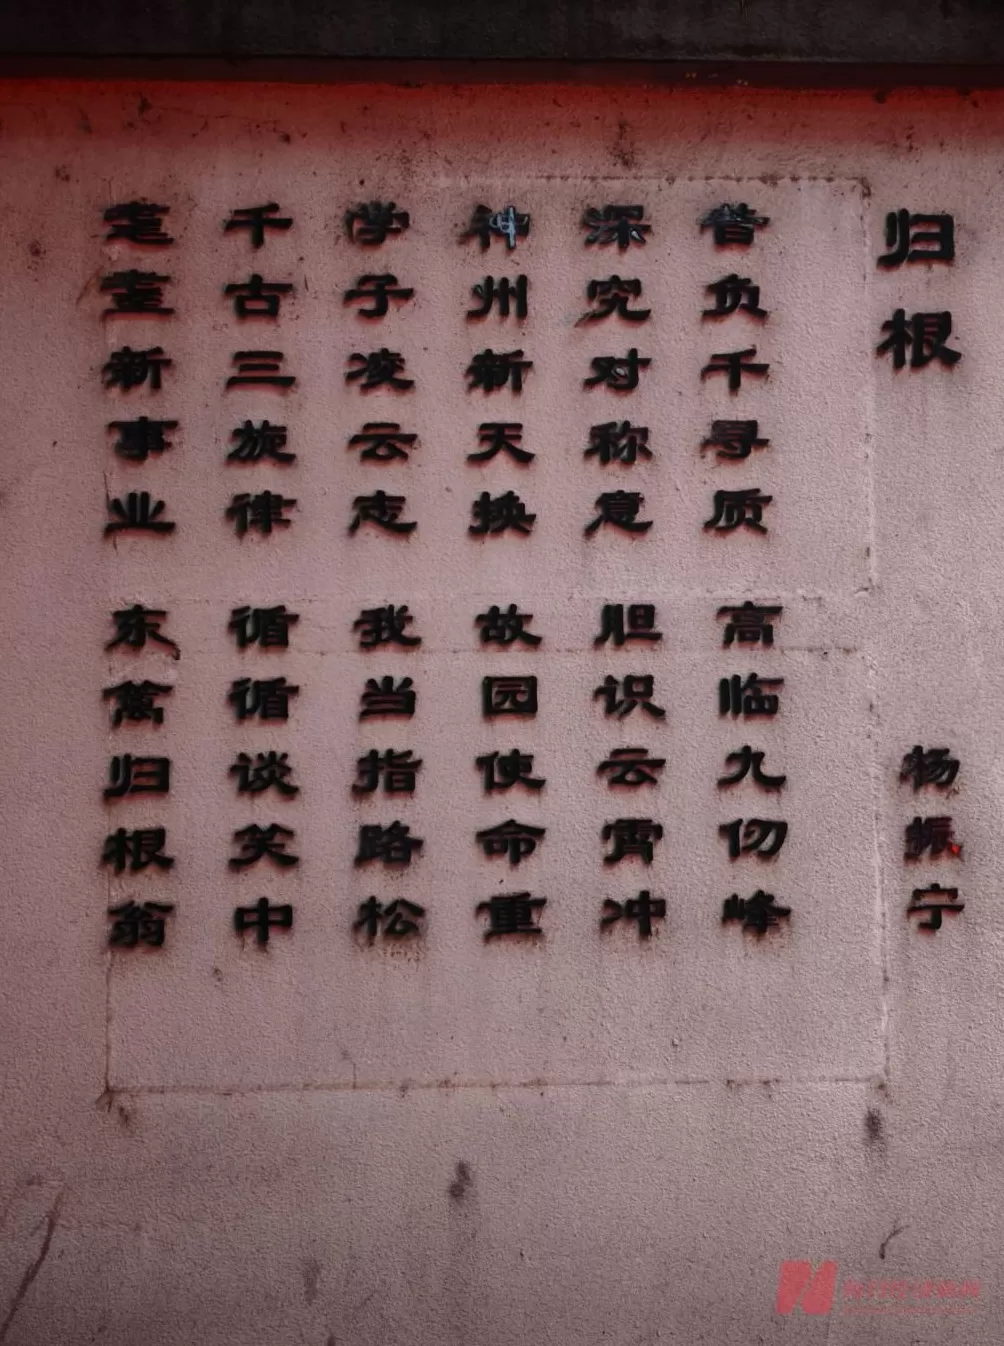 归根
杨振宁
昔负千寻质 高临九仞峰
深究对称意 胆识云霄冲
神州新天换 故园使命重
学子凌云志 我当指路松
千古三旋律 循循谈笑中
耄耋新事业 东篱归根翁